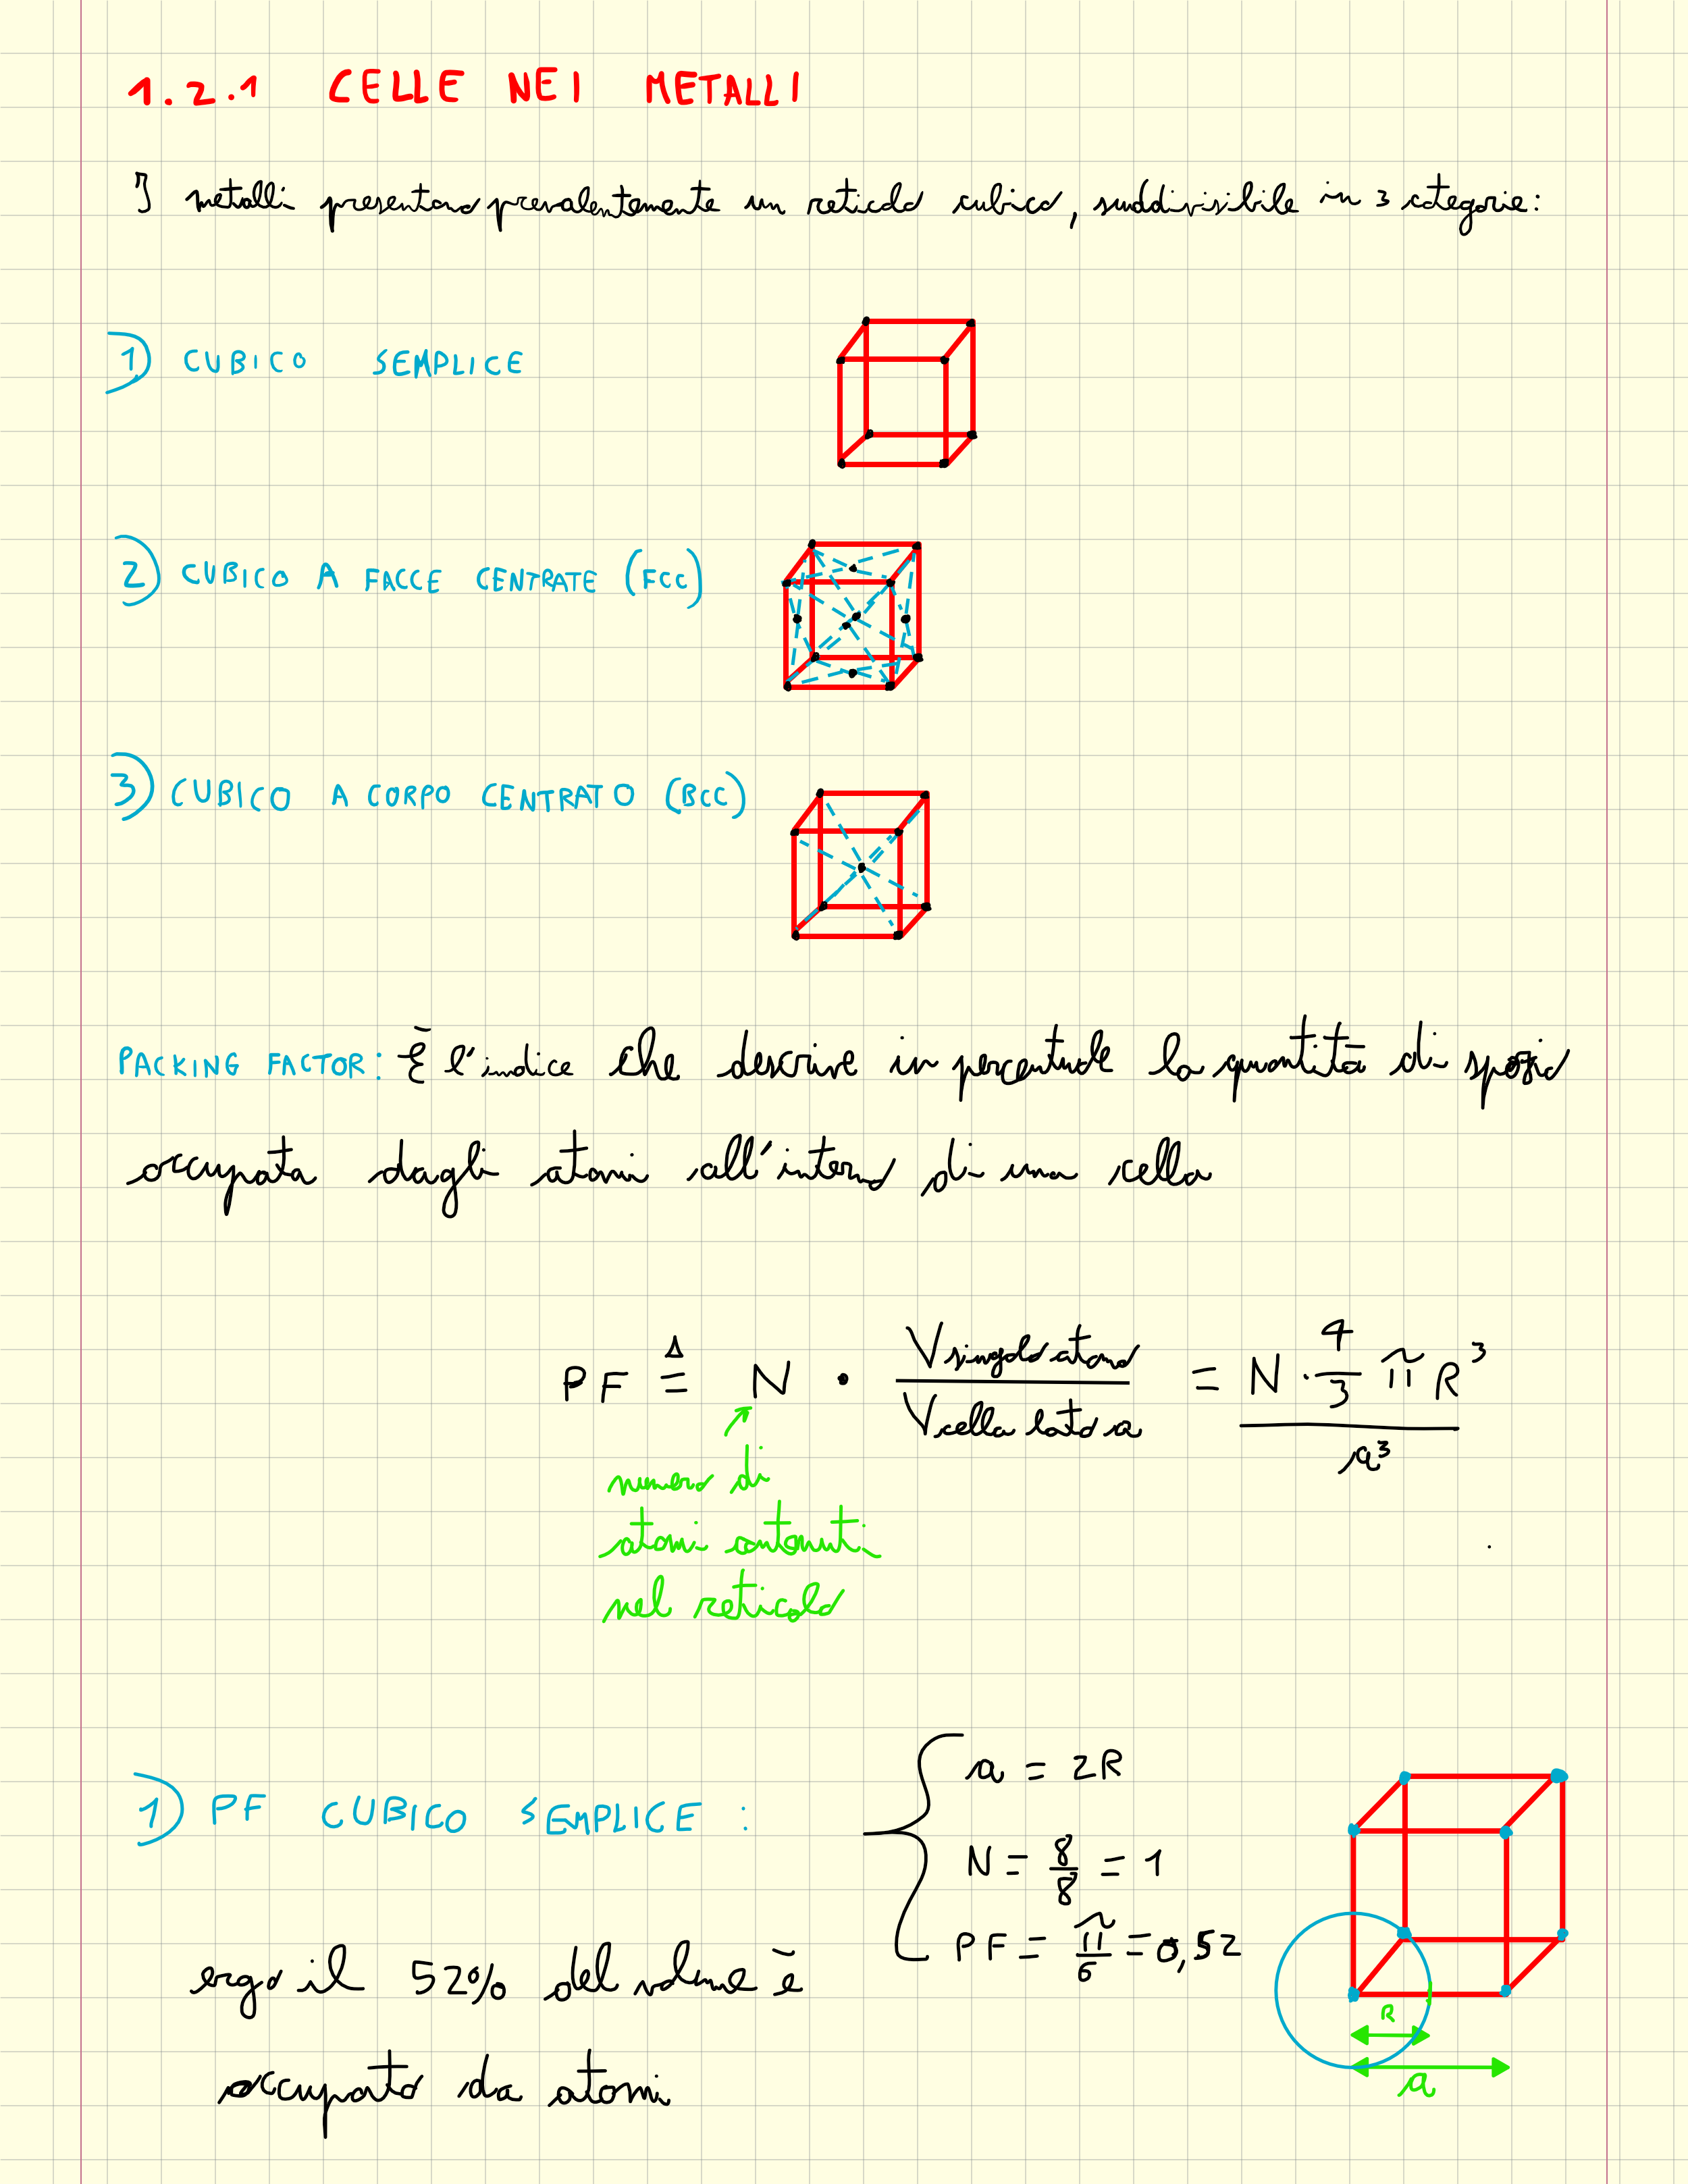 1.2.1 CELLE NEI METALLI
I metalli presentano prevalentemente un reticolo cubico, suddivisibile in 3 categorie:
1) CUBICO SEMPLICE
2) CUBICO A FACCE CENTRATE (FCC)
3) CUBICO A CORPO CENTRATO (BCC)
PACKING FACTOR: È l'indice che descrive in percentuale la quantità di spazio
occupata dagli atomi all'interno di una cella
PF ≜ N · V singolo atomo / V cella lato a = N · 4/3 π R³ / a³
numero di
atomi contenuti
nel reticolo
1) PF CUBICO SEMPLICE:
a = 2R
N = 8/8 = 1
PF = π/6 = 0,52
R
a
ergo il 52% del volume è
occupato da atomi